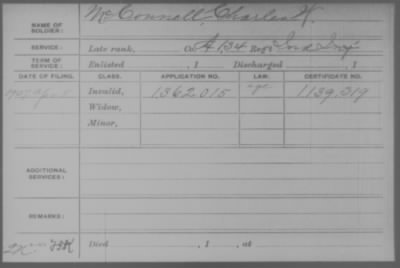 NAME OF SOLDIER: McConnall, Charles H.
SERVICE: Late rank, Co. A, 134 Reg't Ind Inf
TERM OF SERVICE: Enlisted , 1 Discharged , 1
DATE OF FILING. CLASS. APPLICATION NO. LAW. CERTIFICATE NO.
1907 Invalid, 1362.015 1139.319
Widow,
Minor,
ADDITIONAL SERVICES:
REMARKS:
Died , 1 , at